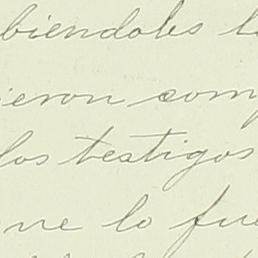 biendoles l
ieron com
los testigos
ne lo fue